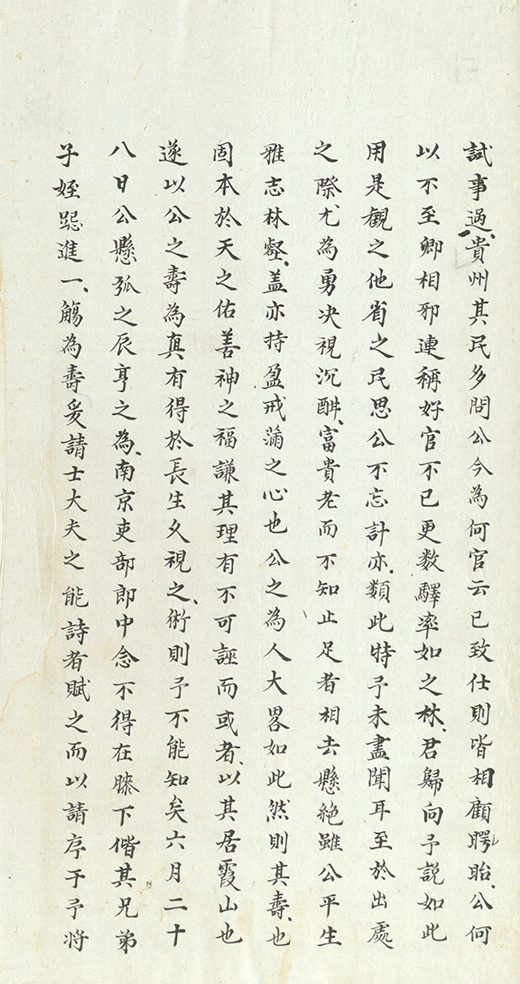 試事過貴州其民多問公今為何官云已致仕則皆相顧愕眙公何
以不至卿相邪連稱好官不已更数驛率如之林君歸向予説如此
用是觀之他省之民思公不忘計亦類此特予未盡聞耳至於出處
之際尤為勇决視沉酣富貴老而不知止足者相去懸絶雖公平生
雅志林壑盖亦持盈戒滿之心也公之為人大畧如此然則其壽也
固本於天之佑善神之福謙其理有不可誣而或者以其居霞山也
遂以公之壽為真有得於長生久視之術則予不能知矣六月二十
八日公懸弧之辰亨之為南京吏部郎中念不得在膝下偕其兄弟
子姪跽進一觴為壽爰請士大夫之能詩者賦之而以請序于予将